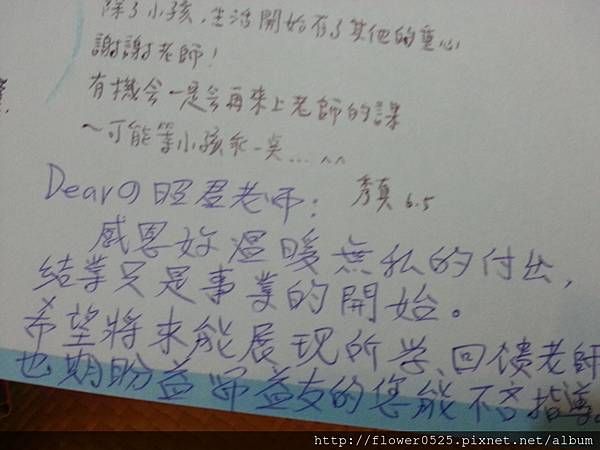 除了小孩，生活開始有了其他的重心
謝謝老師！
有機会一定会再來上老師的課
～可能等小孩乖一点...^^
秀真 6.5
Dearの昭君老師：
感恩妳溫暖無私的付出，
結業只是事業的開始。
希望將來能展现所学、回饋老師
也期盼益師益友的您能不吝指導。
http://flower0525.pixnet.net/album